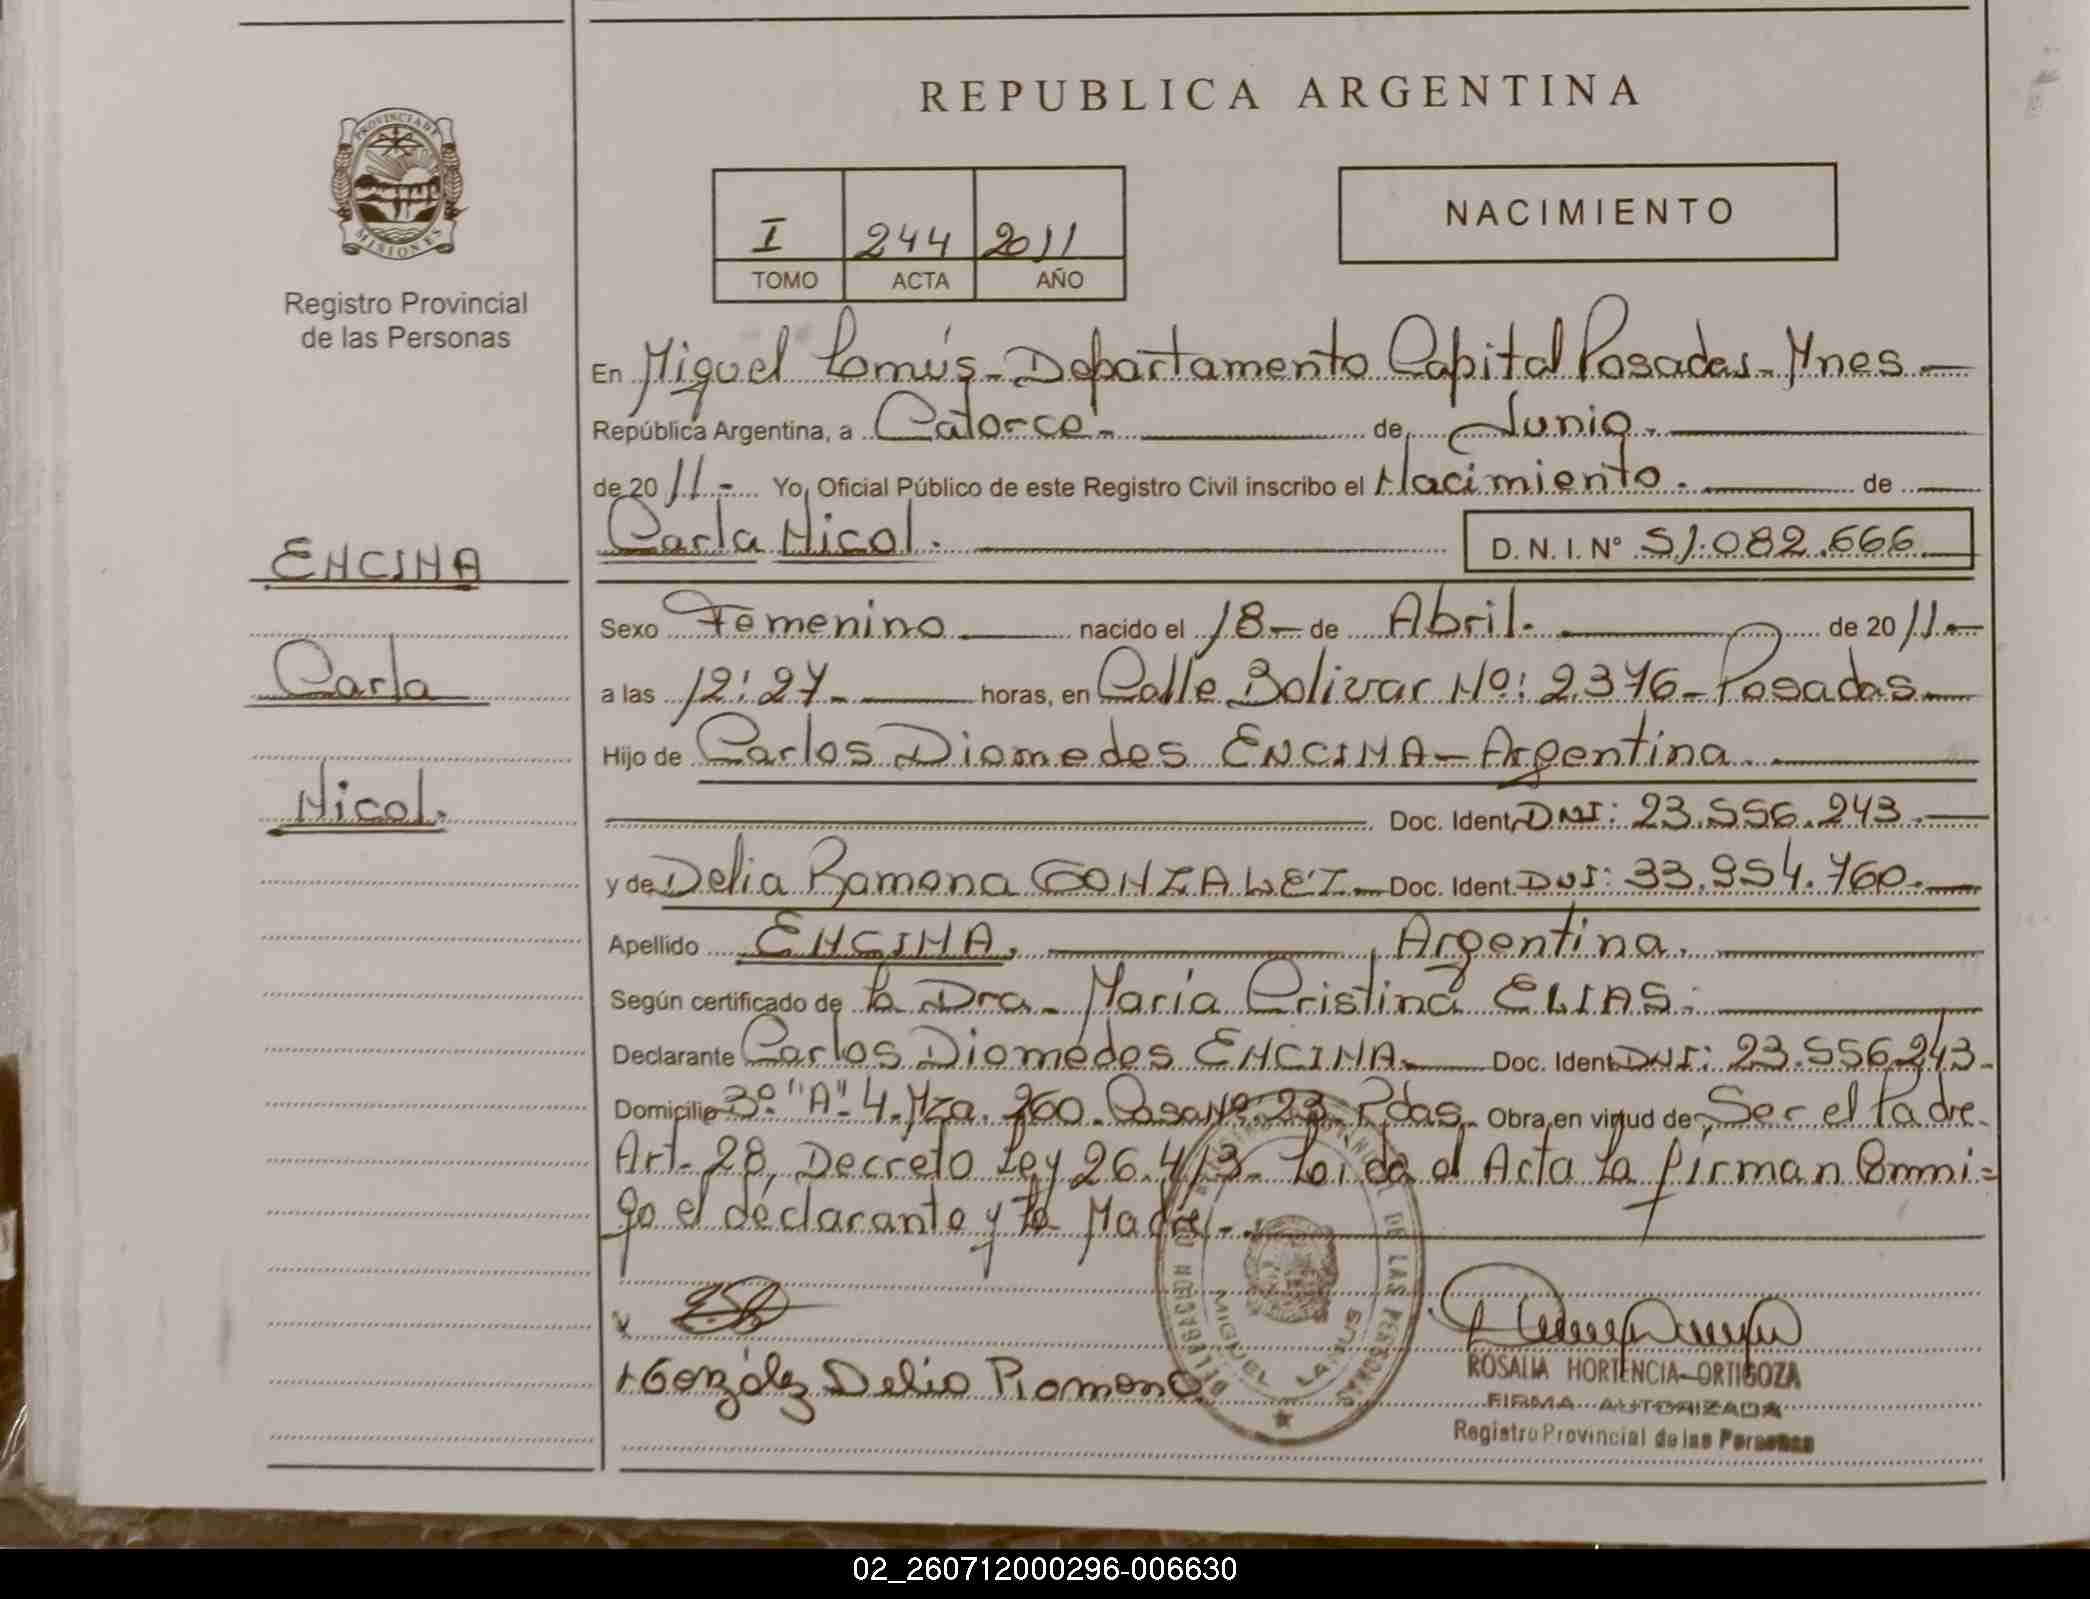 REPUBLICA ARGENTINA
PROVINCIA DE
MISIONES
Registro Provincial
de las Personas
I 244 2011
TOMO ACTA AÑO
NACIMIENTO
En Miguel Lanús - Departamento Capital Posadas - Mnes -
República Argentina, a Catorce.- de Junio.-
de 2011.- Yo, Oficial Público de este Registro Civil inscribo el Nacimiento.- de
Carla Nicol. D. N. I. Nº 51.082.666
ENCINA
Carla
Nicol.
Sexo Femenino nacido el 18 - de Abril. de 2011.-
a las 12:27 - horas, en Calle Bolivar Nº: 2.376 - Posadas
Hijo de Carlos Diomedes ENCINA - Argentina.
Doc. Ident. DNI: 23.556.243.
y de Delia Ramona GONZALEZ - Doc. Ident. DNI: 33.954.760.
Apellido ENCINA. Argentina.
Según certificado de la Dra. María Cristina ELIAS.
Declarante Carlos Diomedes ENCINA. Doc. Ident. DNI: 23.556.243.
Domicilio 3º "A" 4. Mza. 260. Casa Nº 23 Pdas. Obra en virtud de Ser el Padre.
Art. 28, Decreto Ley 26.413 - Leida el Acta la firman Conmi=
go el declarante y la Madre.-
Gonzólez Delia Ramona
REGISTRO PROVINCIAL DE LAS PERSONAS
DELEGACION
MIGUEL LANUS
ROSALIA HORTENCIA ORTIGOZA
FIRMA AUTORIZADA
Registro Provincial de las Personas
02_260712000296-006630